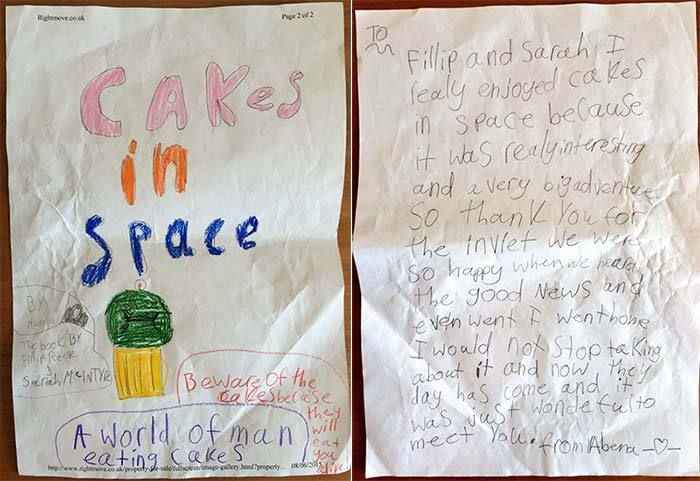 Rightmove.co.uk Page 2 of 2
CAKes
in
space
BY
Abena
The book BY
Fillip Reeve
&
Sarah McINTYre
Beware Of the
cakes becase
they
will
eat
you
alive
A world of man
eating cakes
http://www.rightmove.co.uk/property-for-sale/fullscreen/image-gallery.html?property... 08/06/2015
TO
Fillip and Sarah I
realy enjoyed cakes
in space because
it was realy interesting
and a very big adventure
So thank You for
the inviet we were
so happy when we heard
the good news and
even went I went home
I would not stop taking
about it and now they
day has come and it
was just wondeful to
meet You. from Abena -♡-